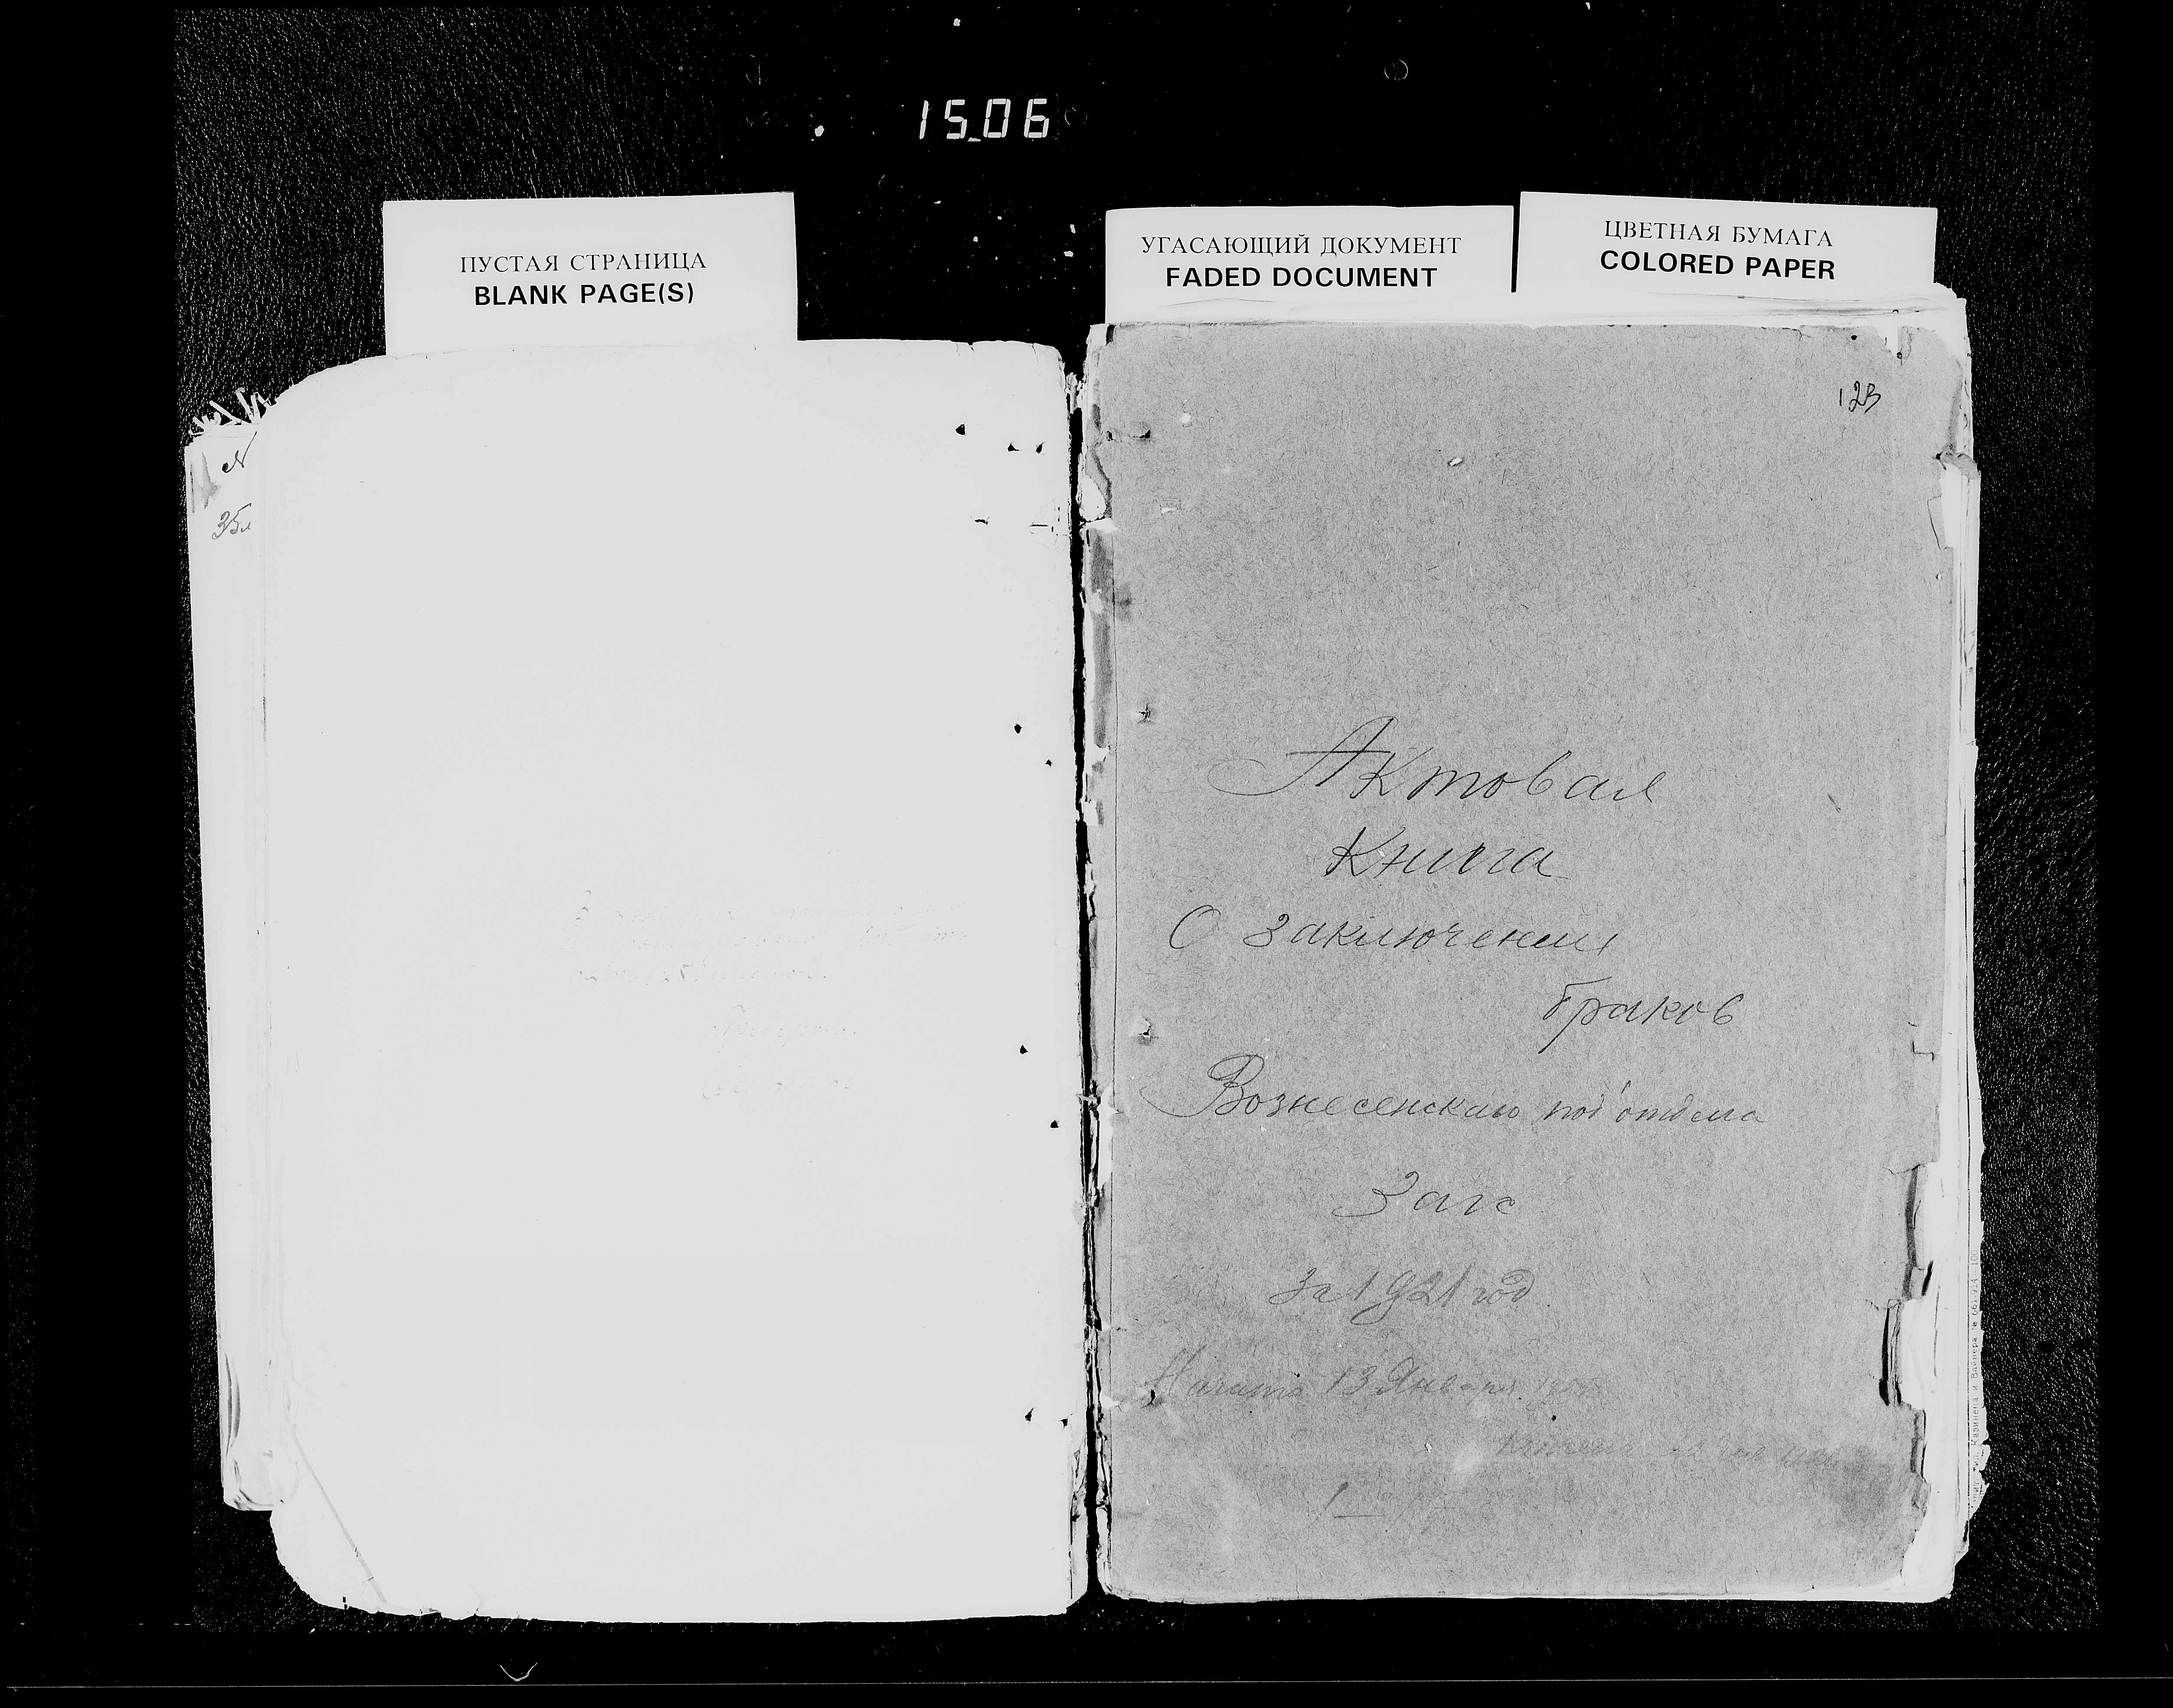 15.06
ПУСТАЯ СТРАНИЦА
BLANK PAGE(S)
35
УГАСАЮЩИЙ ДОКУМЕНТ
FADED DOCUMENT
ЦВЕТНАЯ БУМАГА
COLORED PAPER
123
Актовая
Книга
О заключении
браков
Вознесенскаго под'отдела
Загс
За 1921 год
Начата 13 Января